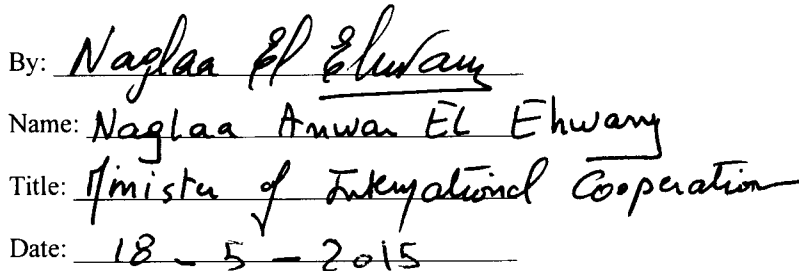 By: Naglaa El Ehwany
Name: Naglaa Anwar EL Ehwany
Title: Minister of International Cooperation
Date: 18 - 5 - 2015